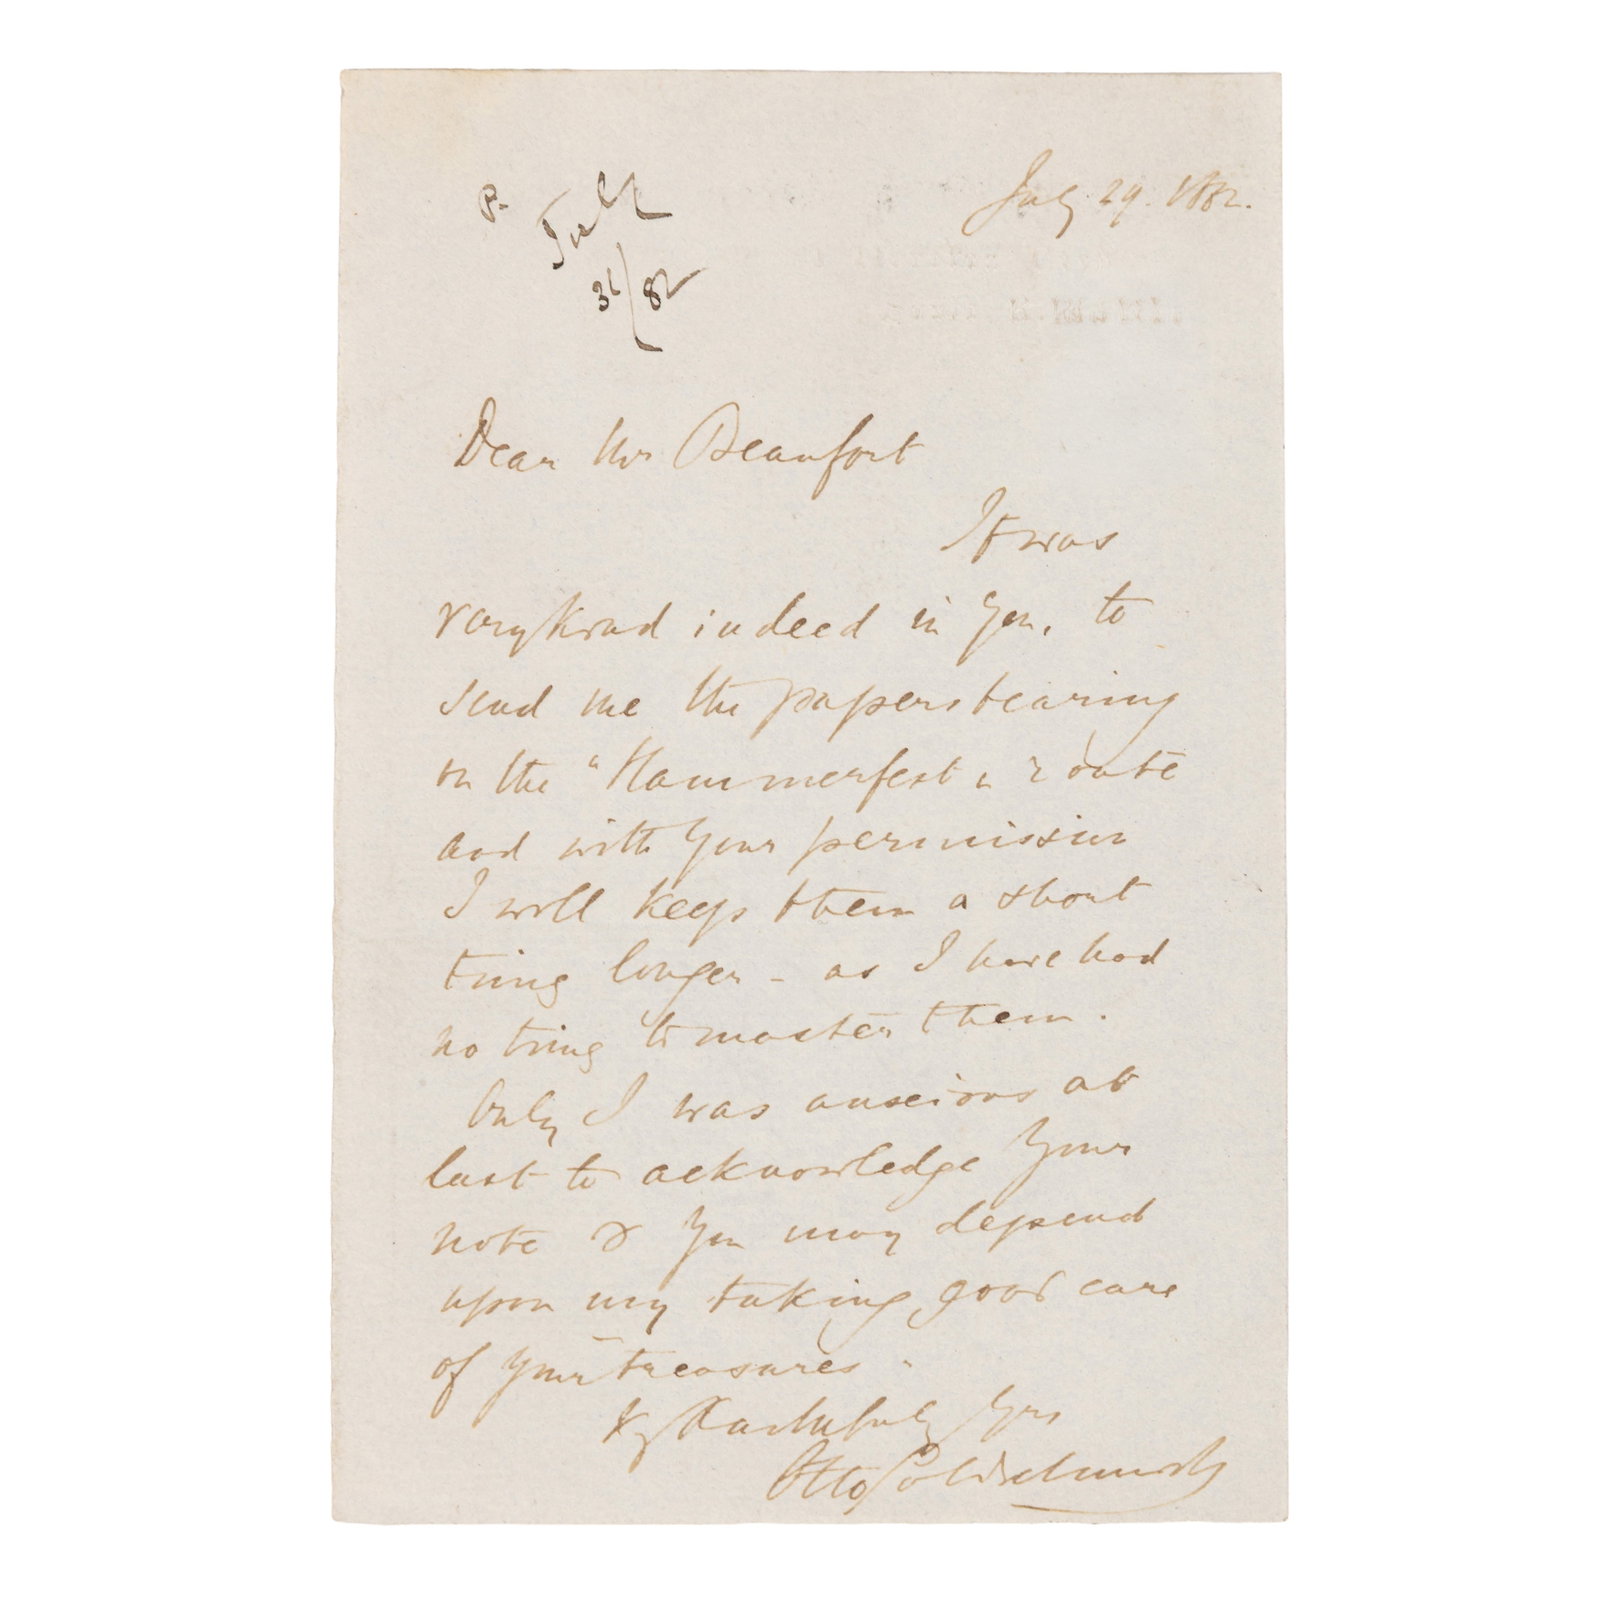 July 29. 1882.
P.
July
31/82
Dear Mr Beaufort
It was
very kind indeed in you, to
send me the papers bearing
on the "Hammerfest" route
and with your permission
I will keep them a short
time longer - as I have had
no time to master them.
Only I was anxious at
last to acknowledge your
note & you may depend
upon my taking good care
of your treasures.
Vy faithfully yrs
Otto Goldschmidt